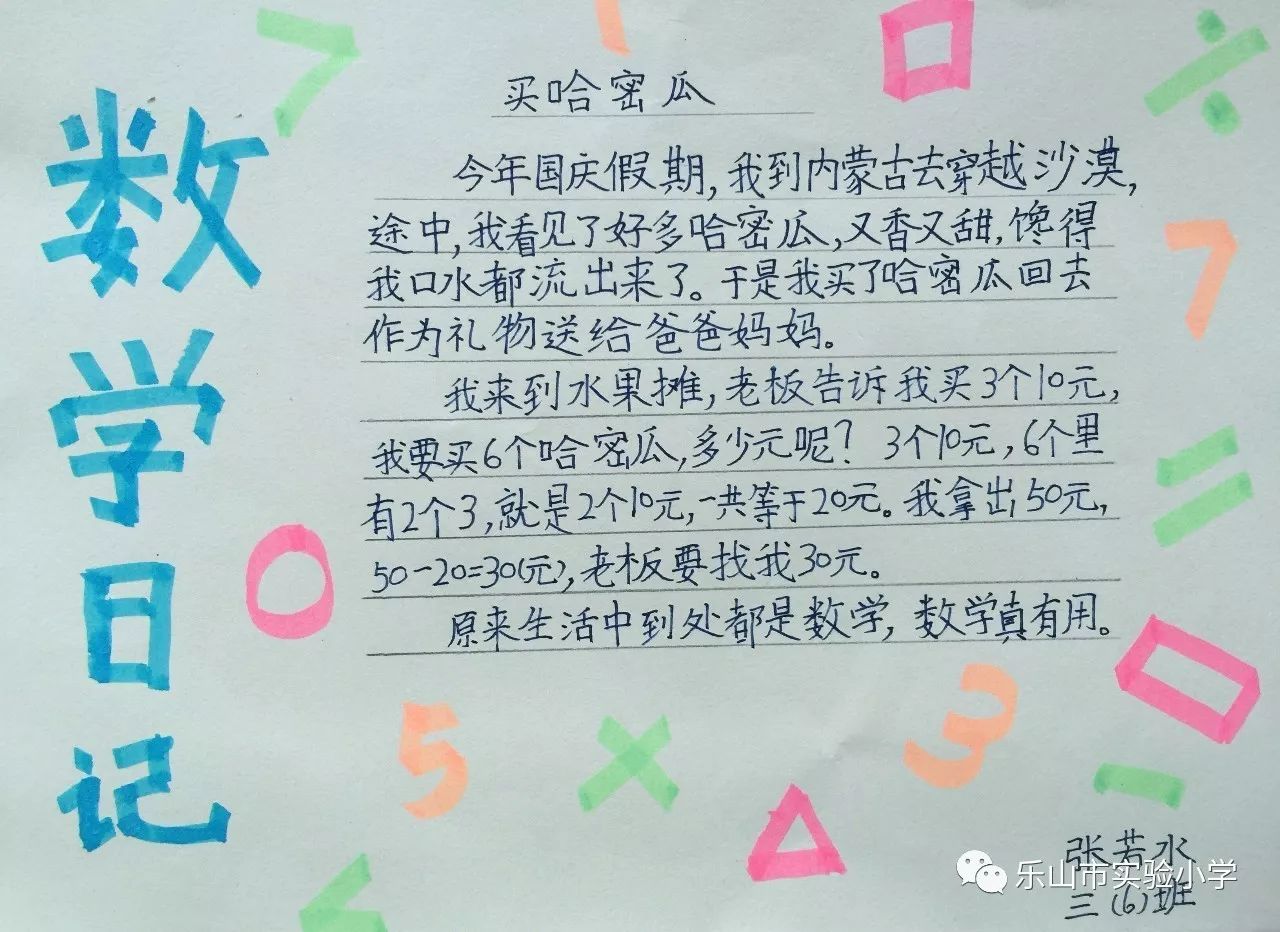 数学日记
买哈密瓜
今年国庆假期,我到内蒙古去穿越沙漠,
途中,我看见了好多哈密瓜,又香又甜,馋得
我口水都流出来了。于是我买了哈密瓜回去
作为礼物送给爸爸妈妈。
我来到水果摊,老板告诉我买3个10元,
我要买6个哈密瓜,多少元呢? 3个10元,6个里
有2个3,就是2个10元,一共等于20元。我拿出50元,
50-20=30(元),老板要找我30元。
原来生活中到处都是数学,数学真有用。
>
1
÷
7
=
5
×
3
-
<
张若水
三(6)班
乐山市实验小学